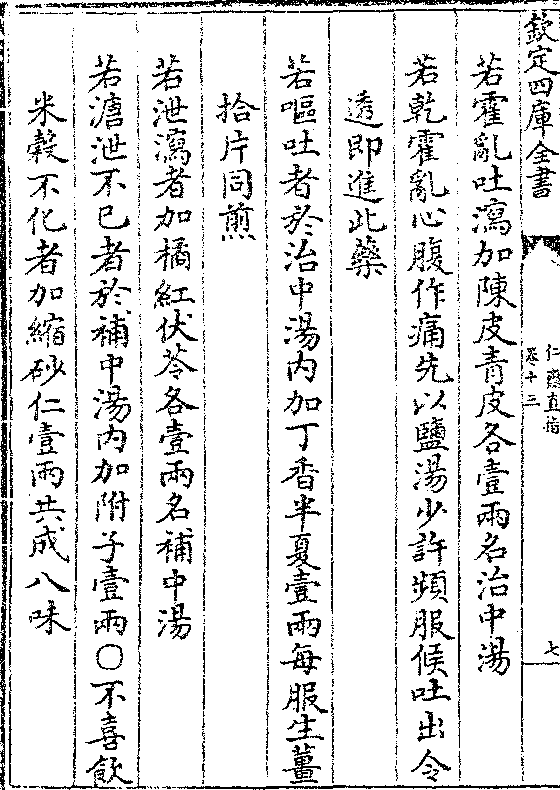 欽定四庫全書
仁齋直指
卷十三
七
若霍亂吐瀉加陳皮青皮各壹兩名治中湯
若乾霍亂心腹作痛先以鹽湯少許頻服候吐出令
透即進此藥
若嘔吐者於治中湯内加丁香半夏壹兩每服生薑
拾片同煎
若泄瀉者加橘紅伏苓各壹兩名補中湯
若溏泄不已者於補中湯内加附子壹兩○不喜飲
米糓不化者加縮砂仁壹兩共成八味